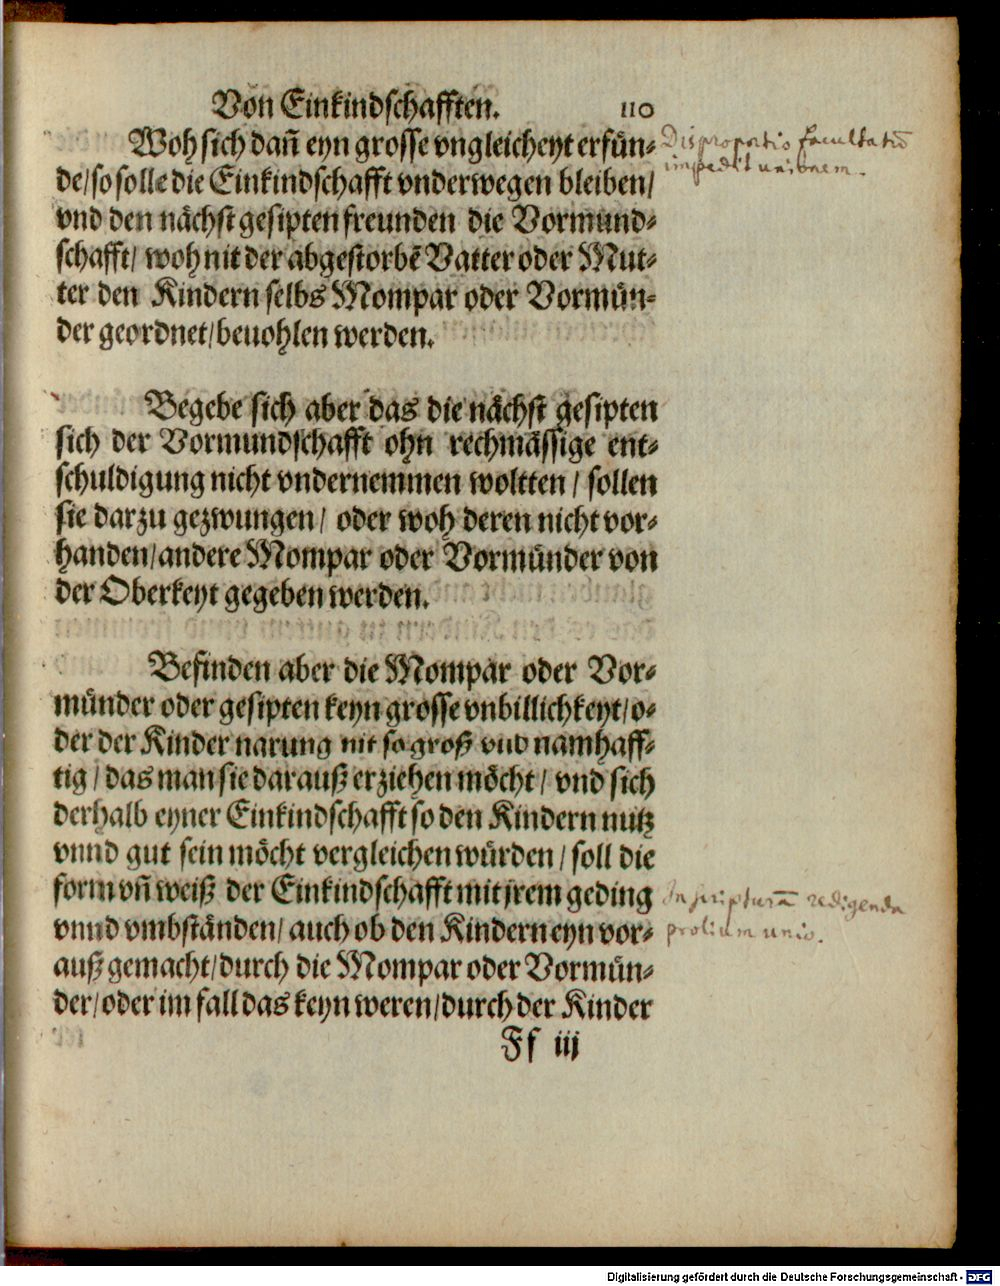 Von Einkindschafften. 110
Woh sich dañ eyn grosse vngleicheyt erfün-
de/ so solle die Einkindschafft vnderwegen bleiben/
vnd den nåchst gesipten freunden die Vormund-
schafft/ woh nit der abgestorbē Vatter oder Mut-
ter den Kindern selbs Mompar oder Vormün-
der geordnet/ beuohlen werden.
Disproportio facultatū
impedit unionem.
Begebe sich aber das die nåchst gesipten
sich der Vormundschafft ohn rechmåssige ent-
schuldigung nicht vndernemmen woltten/ sollen
sie darzu gezwungen/ oder woh deren nicht vor-
handen/ andere Mompar oder Vormünder von
der Oberkeyt gegeben werden.
Befinden aber die Mompar oder Vor-
münder oder gesipten keyn grosse vnbillichkeyt/ o-
der der Kinder narung nit so groß vnd namhaff-
tig/ das man sie darauß erziehen möcht/ vnd sich
derhalb eyner Einkindschafft so den Kindern nutz
vnnd gut sein möcht vergleichen würden/ soll die
form vñ weiß der Einkindschafft mit jrem geding
vnnd vmbständen/ auch ob den Kindern eyn vor-
auß gemacht/ durch die Mompar oder Vormün-
der/ oder im fall das keyn weren/ durch der Kinder
In scripturā redigenda
prolium unio.
Ff iij
Digitalisierung gefördert durch die Deutsche Forschungsgemeinschaft - DFG